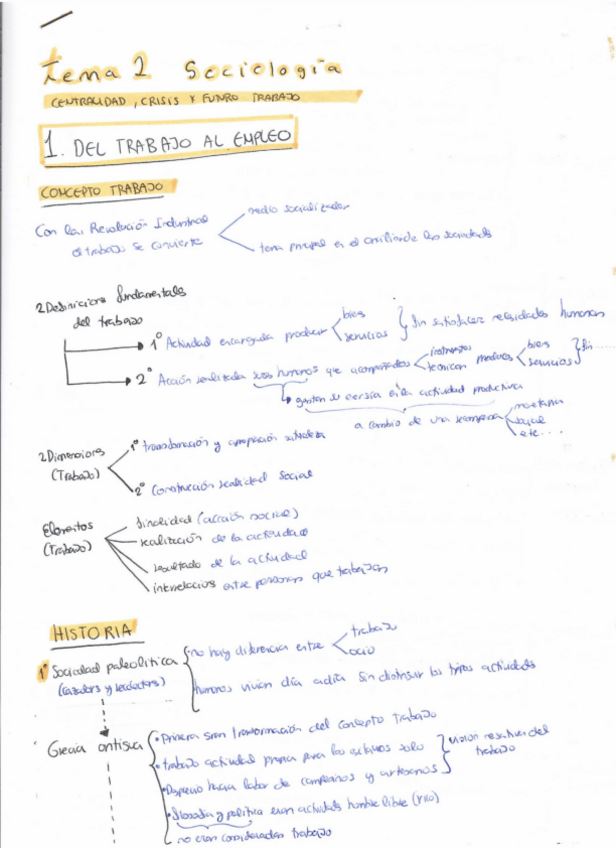 Tema 2 Sociología
CENTRALIDAD, CRISIS Y FUTURO TRABAJO
1. DEL TRABAJO AL EMPLEO
CONCEPTO TRABAJO
Con la Revolución Industrial
el trabajo se convierte
medio socializador
tema principal en el de las sociedades
2 Definiciones fundamentales
del trabajo
1º Actividad encargada producir
bienes
servicios
fin satisfacer necesidades humanas
2º Acción realizada seres humanos que acompañados
instrumentos
técnicas
producen
bienes
servicios
fin .....
gastan su energía en la actividad productiva
a cambio de una recompensa
monetaria
social
etc....
2 Dimensiones
(Trabajo)
1º transformación y apropiación naturaleza
2º Construcción realidad social
Elementos
(Trabajo)
finalidad (acción social)
realización de la actividad
resultado de la actividad
interrelacios entre personas que trabajan
HISTORIA
1º Sociedad paleolítica
(cazadors y recolectors)
no hay diferencia entre
trabajo
ocio
humanos vivían día a día sin distinguir los tipos actividades
Grecia antigua
• Primera gran transformación del concepto trabajo
• trabajo actividad propia para los esclavos solo
• Desprecio hacia labor de campesinos y artesanos
visión restrictiva del
trabajo
• filosofía y política eran actividads hombre libre
no eran consideradas trabajo